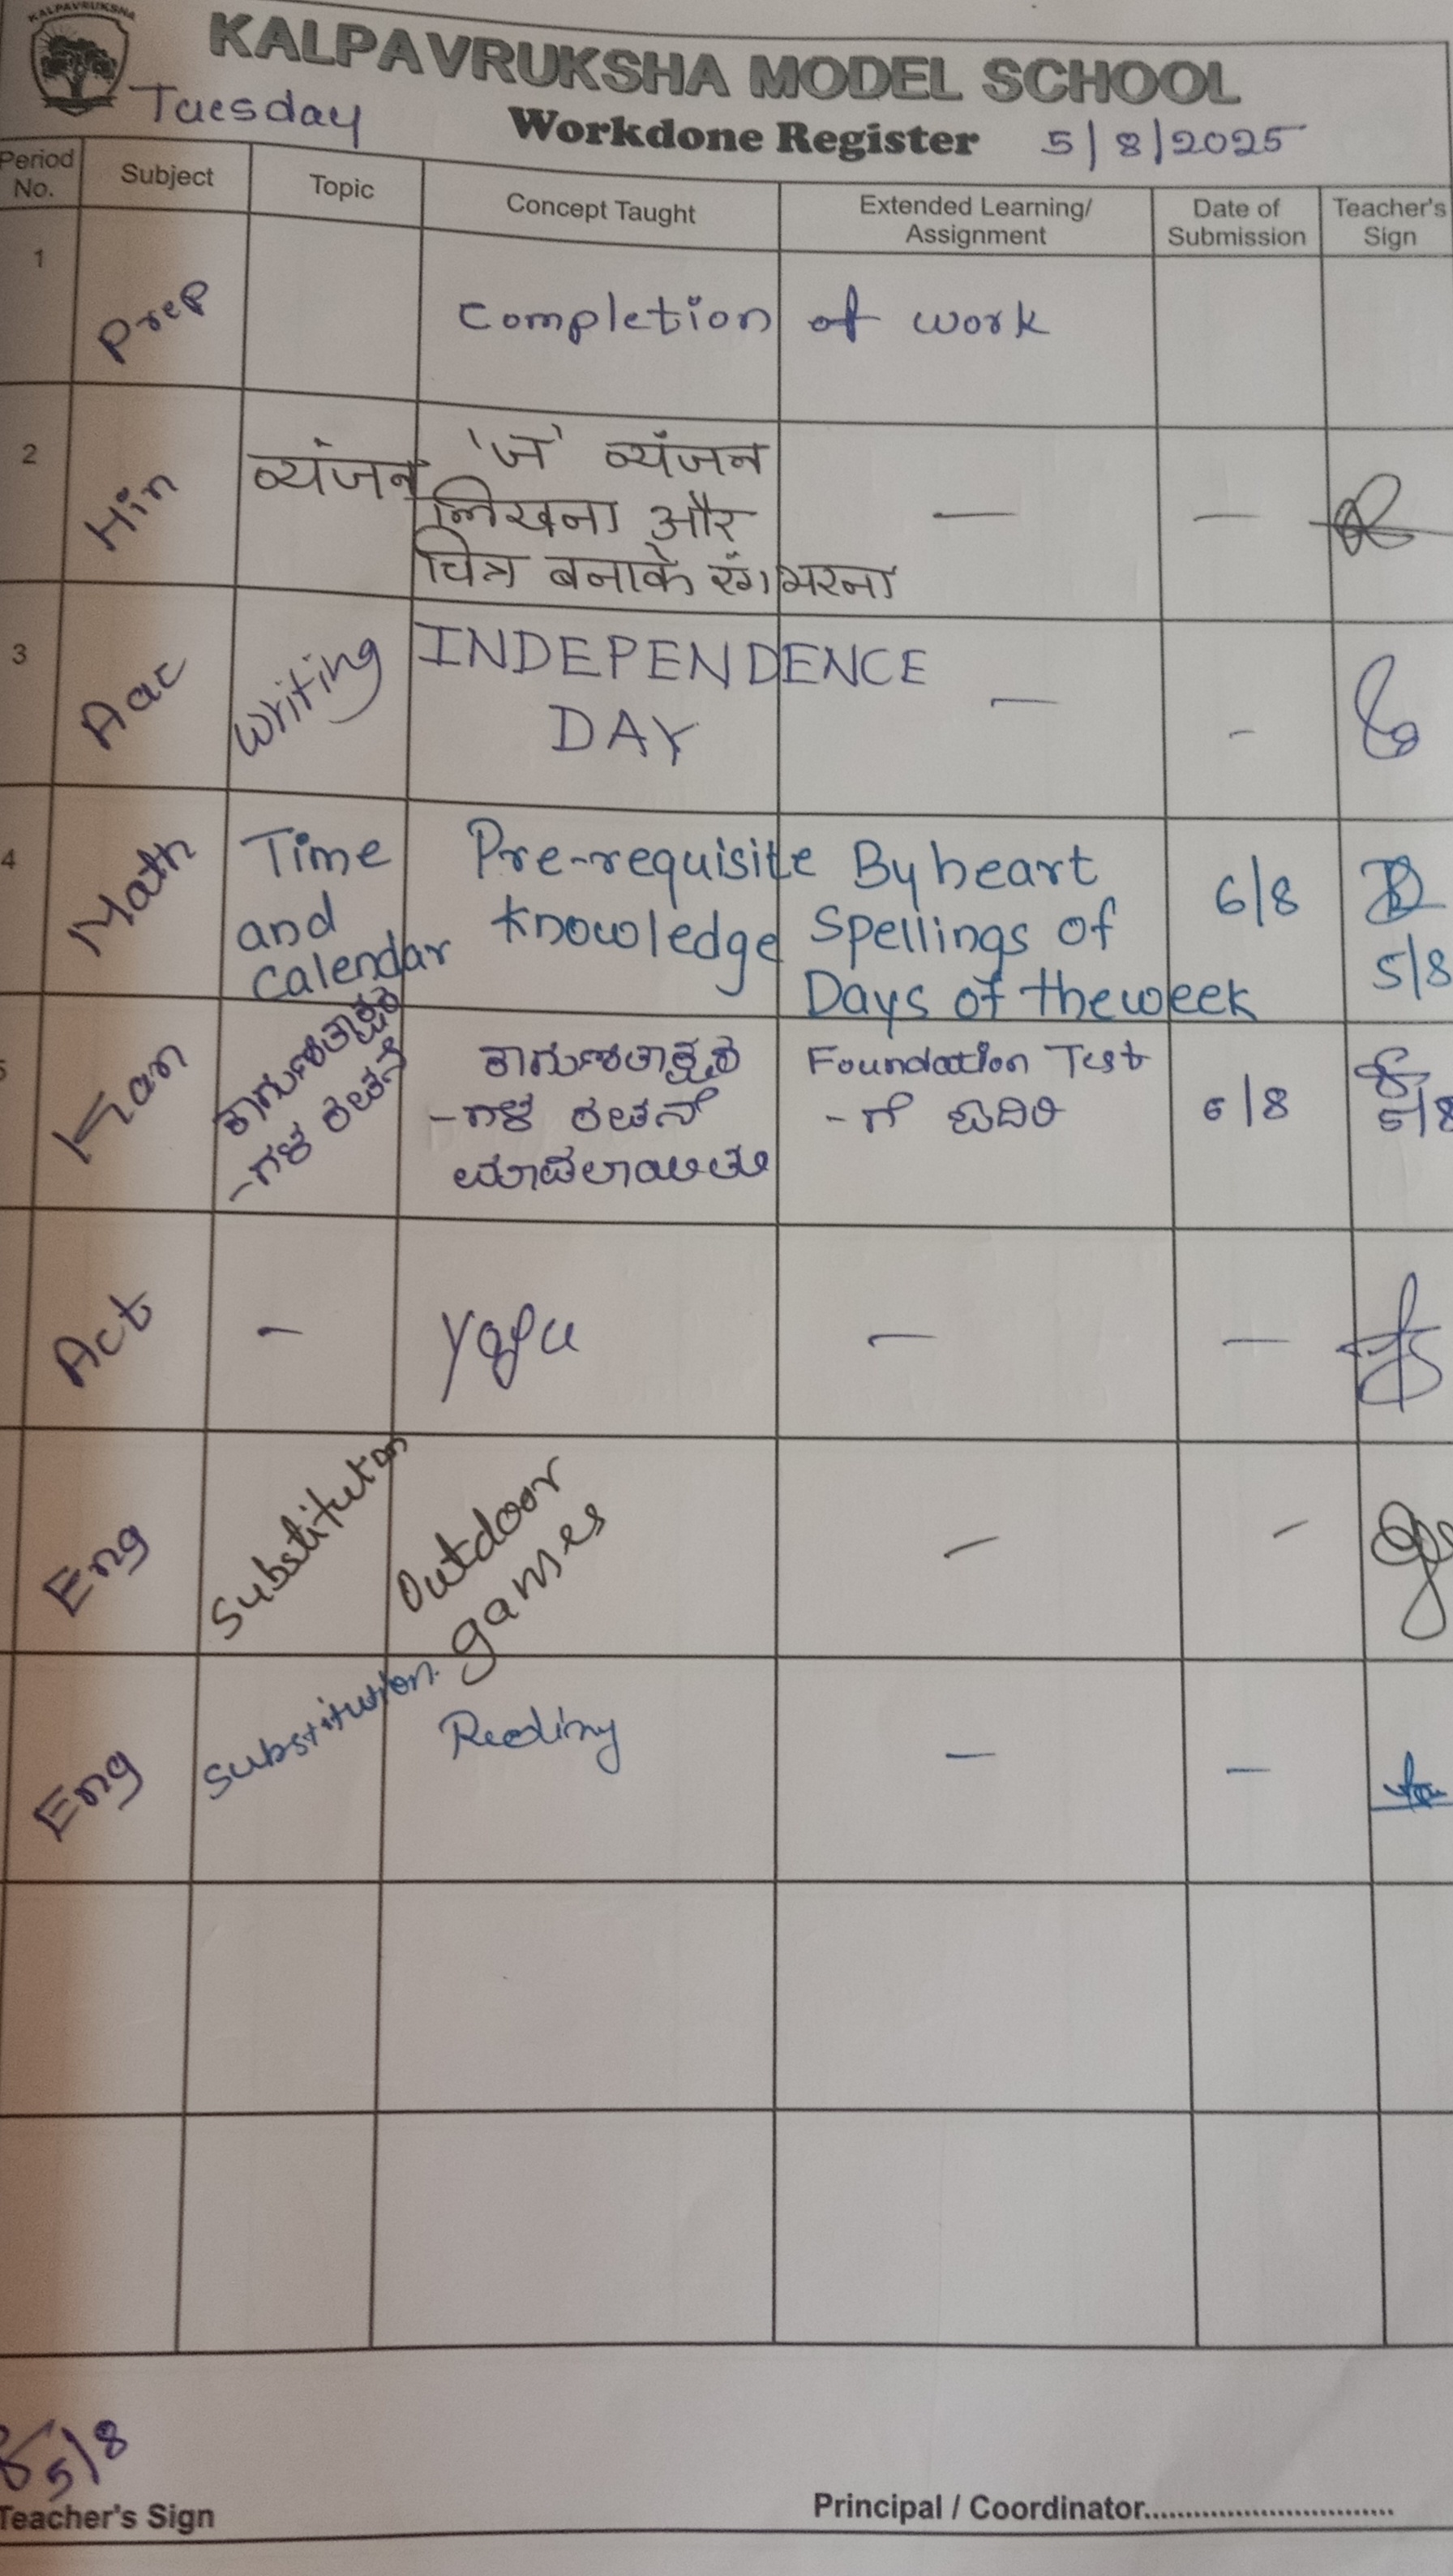 KALPAVRUKSHA
KALPAVRUKSHA MODEL SCHOOL
Tuesday
Workdone Register 5/8/2025
Period No. Subject Topic Concept Taught Extended Learning/ Assignment Date of Submission Teacher's Sign
1 Prep Completion of work
2 Hin व्यंजन 'ज' व्यंजन
लिखना और — —
चित्र बनाके रंग भरना
3 Aac Writing INDEPENDENCE
DAY — -
4 Math Time Pre-requisite By heart 6/8
and knowledge Spellings of
Calendar Days of the week 5/8
5 Kan ಕಾಗುಣಿತಾಕ್ಷರ ಕಾಗುಣಿತಾಕ್ಷರ Foundation Test
-ಗಳ ರಚನೆ -ಗಳ ರಚನೆ -ಗೆ ಓದಿರಿ 6/8 5/8
ಮಾಡಲಾಯಿತು
Act - Yoga — —
Eng Substituton Outdoor — -
games
Eng Substitution. Reading — —
5/8
Teacher's Sign
Principal / Coordinator..............................